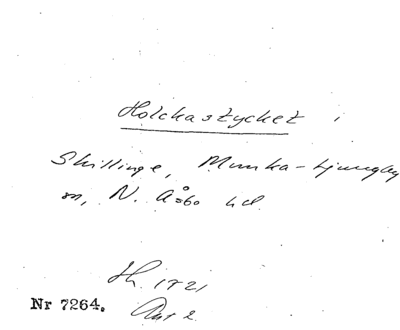 Holckastycket
Skillinge, Munka-Ljungby
sn, N. Åsbo hd.
Sk. 1821
Akt 2
Nr 7264.